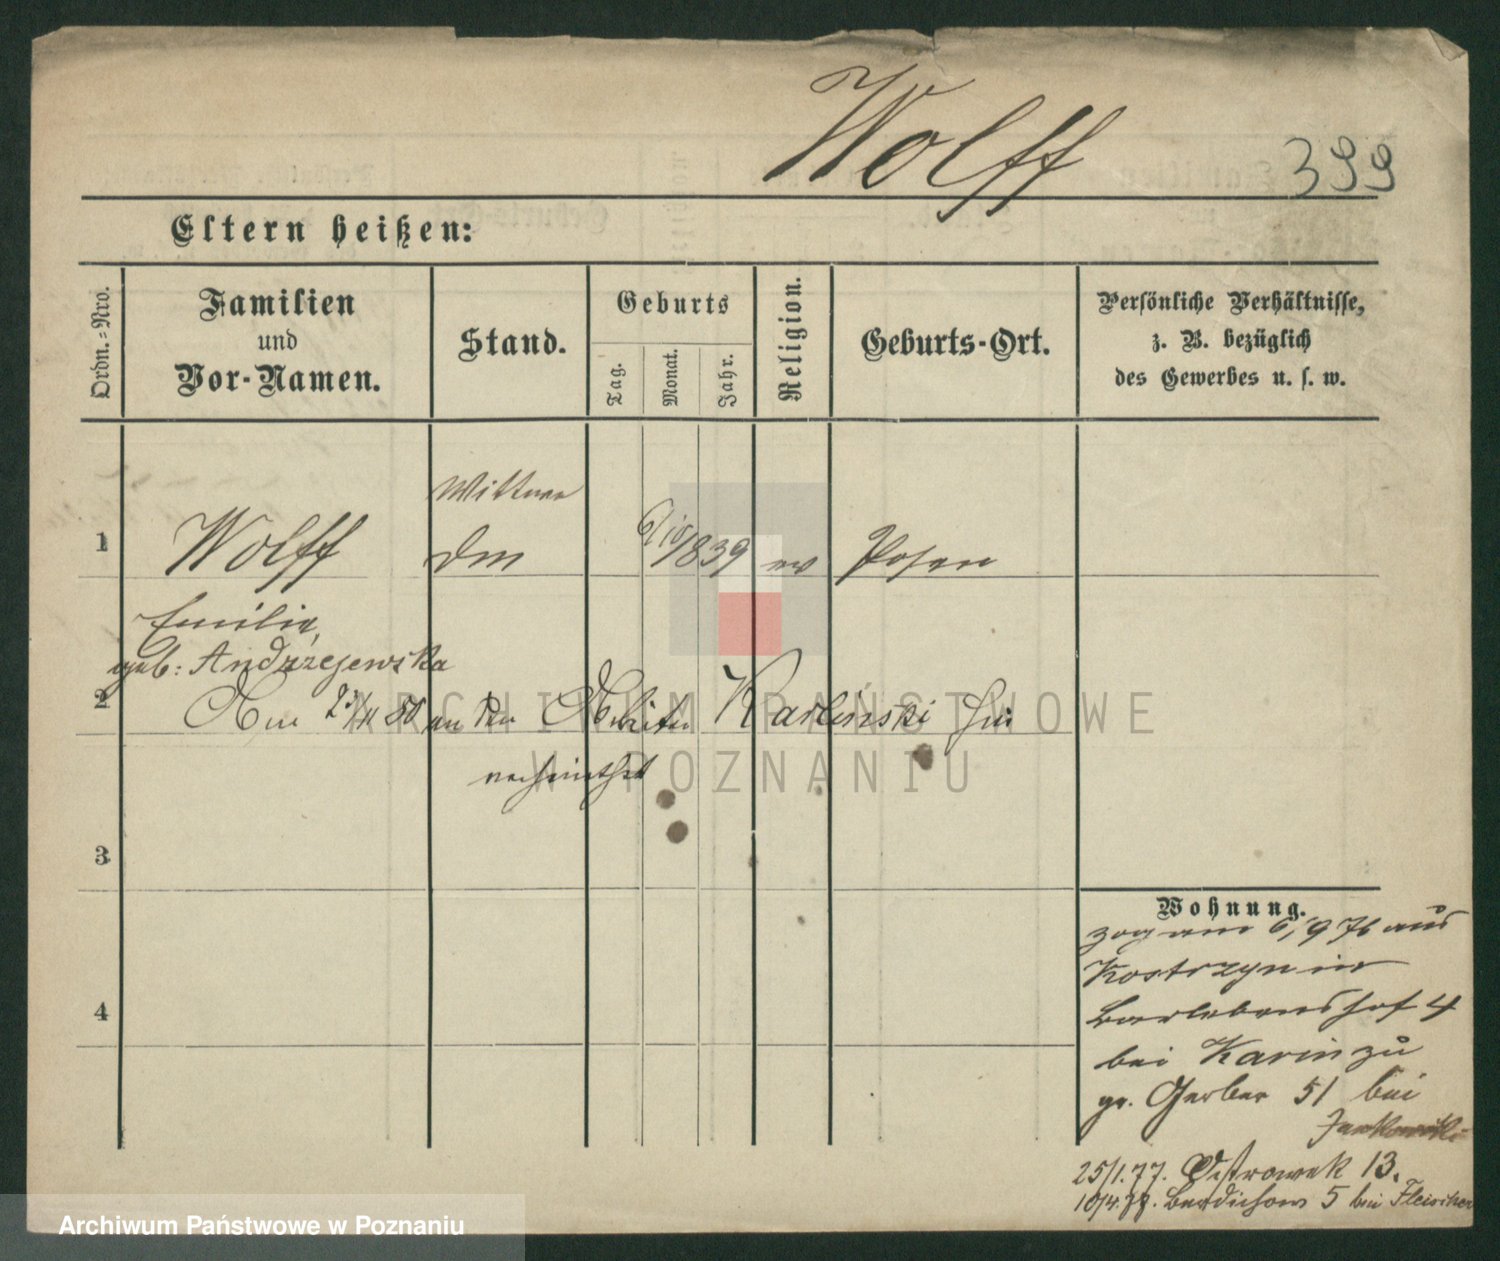 Wolff 399
Eltern heißen:
Ordn.-Nro.
Familien
und
Vor-Namen.
Stand.
Geburts
Tag.
Monat.
Jahr.
Religion.
Geburts-Ort.
Persönliche Verhältnisse,
z. B. bezüglich
des Gewerbes u. s. w.
Wittwe
1 Wolff 6/10/839 ev Posen
Emilie,
geb: Andrzejewska
2 Am 80 an den Arbeiter Karlinski hier
verheirathet
3
4
Wohnung.
zog am 6/9 76 aus
Kostrzyn in
Barlebenshof 4
bei Karin zu
gr. Gerber 51 bei
Jankowski
25/1.77. Ostrowek 13.
10/4. Berdichowo 5 bei Fleischer
ARCHIWUM PAŃSTWOWE
W POZNANIU
Archiwum Państwowe w Poznaniu